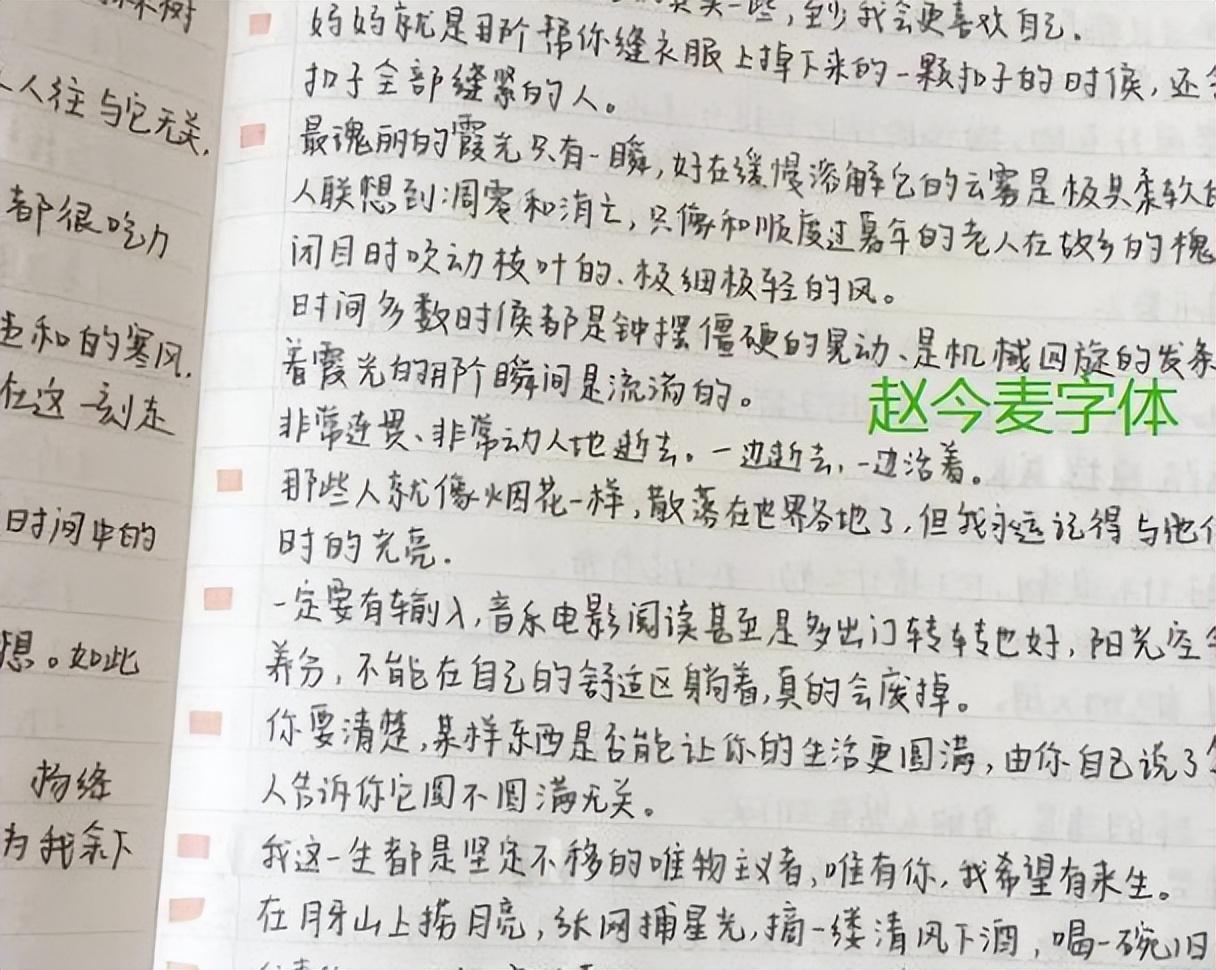 人往与它无关,
都很吃力
和的寒风,
在这一刻走
时间中的
想。如此
杨绛
为我余下
一些,至少我会更喜欢自己.
妈妈就是那个帮你缝衣服上掉下来的一颗扣子的时侯,还
扣子全部缝紧的人。
最瑰丽的霞光只有一瞬,好在缓慢溶解它的云雾是极具柔软
人联想到凋零和消亡,只像和顺度过暮年的老人在故乡的槐
闭目时吹动枝叶的、极细极轻的风。
时间多数时侯都是钟摆僵硬的晃动、是机械回旋的发条
着霞光的那个瞬间是流淌的。
赵今麦字体
非常连贯、非常动人地逝去。一边逝去,一边活着。
那些人就像烟花一样,散落在世界各地了,但我永远记得与他们
时的光亮.
一定要有输入,音乐电影阅读甚至是多出门转转也好,阳光空
养分,不能在自己的舒适区躺着,真的会废掉。
你要清楚,某样东西是否能让你的生活更圆满,由你自己说了
人告诉你它圆不圆满无关。
我这一生都是坚定不移的唯物主义者,唯有你,我希望有来生。
在月牙山上捞月亮,张网捕星光,摘一缕清风下酒,喝一碗旧